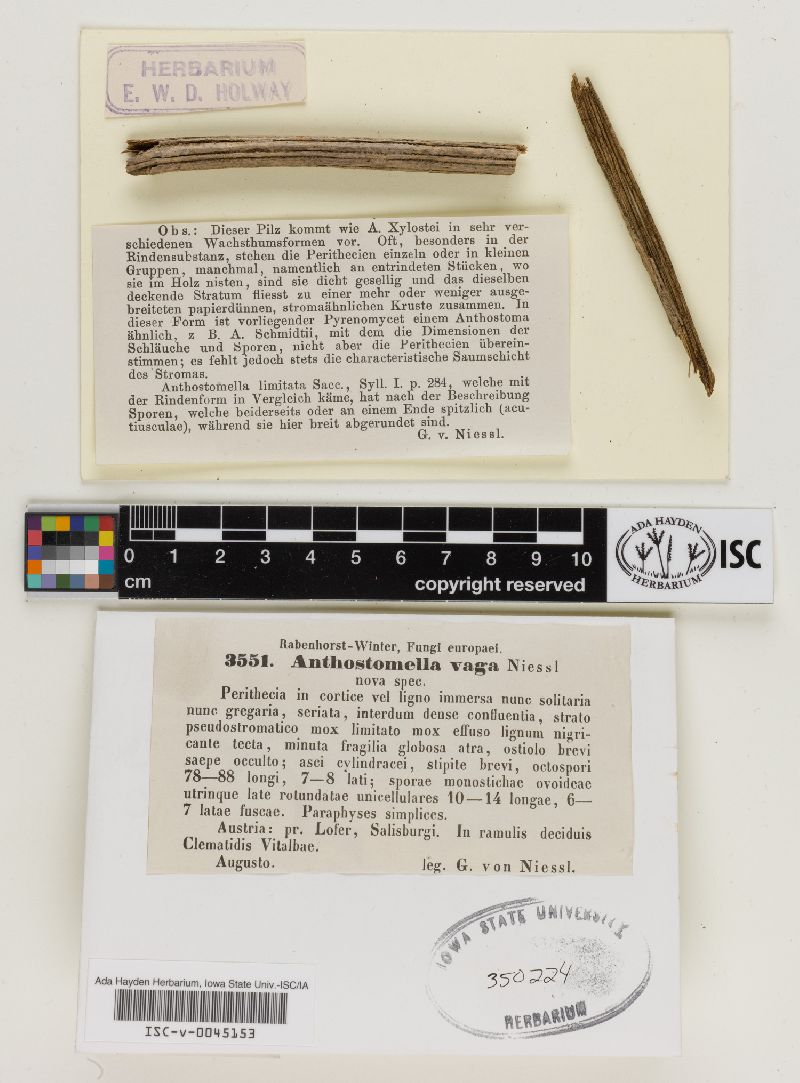 HERBARIUM
E. W. D. HOLWAY
Obs.: Dieser Pilz kommt wie A. Xylostei in sehr ver-
schiedenen Wachsthumsformen vor. Oft, besonders in der
Rindensubstanz, stehen die Perithecien einzeln oder in kleinen
Gruppen, manchmal, namentlich an entrindeten Stücken, wo
sie im Holz nisten, sind sie dicht gesellig und das dieselben
deckende Stratum fliesst zu einer mehr oder weniger ausge-
breiteten papierdünnen, stromaähnlichen Kruste zusammen. In
dieser Form ist vorliegender Pyrenomycet einem Anthostoma
ähnlich, z B. A. Schmidtii, mit dem die Dimensionen der
Schläuche und Sporen, nicht aber die Perithecien überein-
stimmen; es fehlt jedoch stets die characteristische Saumschicht
des Stromas.
Anthostomella limitata Sacc., Syll. I. p. 284, welche mit
der Rindenform in Vergleich käme, hat nach der Beschreibung
Sporen, welche beiderseits oder an einem Ende spitzlich (acu-
tiusculae), während sie hier breit abgerundet sind.
G. v. Niessl.
0 1 2 3 4 5 6 7 8 9 10
cm
copyright reserved
ADA HAYDEN
HERBARIUM
ISC
Rabenhorst-Winter, Fungi europaei.
3551. Anthostomella vaga Niessl
nova spec.
Perithecia in cortice vel ligno immersa nunc solitaria
nunc gregaria, seriata, interdum dense confluentia, strato
pseudostromatico mox limitato mox effuso lignum nigri-
cante tecta, minuta fragilia globosa atra, ostiolo brevi
saepe occulto; asci cylindracei, stipite brevi, octospori
78—88 longi, 7—8 lati; sporae monostichae ovoideae
utrinque late rotundatae unicellulares 10—14 longae, 6—
7 latae fuscae. Paraphyses simplices.
Austria: pr. Lofer, Salisburgi. In ramulis deciduis
Clematidis Vitalbae.
Augusto. leg. G. von Niessl.
IOWA STATE UNIVERSITY
350224
HERBARIUM
Ada Hayden Herbarium, Iowa State Univ.-ISC/IA
ISC-v-0045153